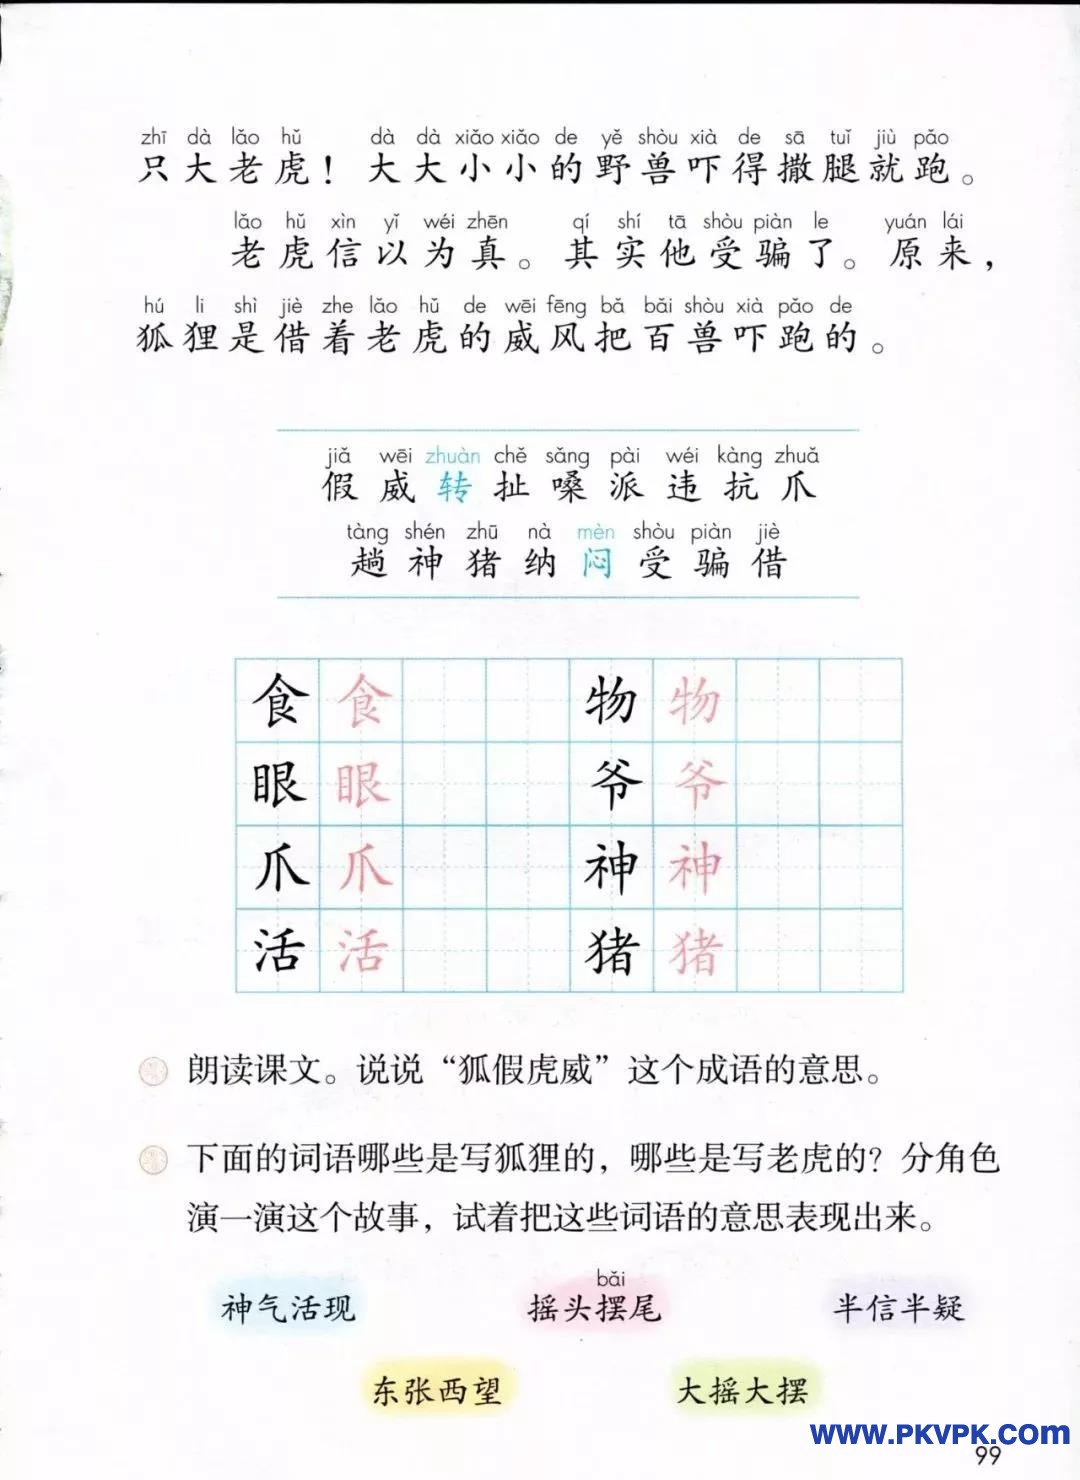 zhī dà lǎo hǔ dà dà xiǎo xiǎo de yě shòu xià de sā tuǐ jiù pǎo
只大老虎！大大小小的野兽吓得撒腿就跑。
lǎo hǔ xìn yǐ wéi zhēn qí shí tā shòu piàn le yuán lái
老虎信以为真。其实他受骗了。原来，
hú li shì jiè zhe lǎo hǔ de wēi fēng bǎ bǎi shòu xià pǎo de
狐狸是借着老虎的威风把百兽吓跑的。
jiǎ wēi zhuàn chě sǎng pài wéi kàng zhuǎ
假威转扯嗓派违抗爪
tàng shén zhū nà mèn shòu piàn jiè
趟神猪纳闷受骗借
食 食 物 物
眼 眼 爷 爷
爪 爪 神 神
活 活 猪 猪
朗读课文。说说“狐假虎威”这个成语的意思。
下面的词语哪些是写狐狸的，哪些是写老虎的？分角色
演一演这个故事，试着把这些词语的意思表现出来。
bǎi
神气活现 摇头摆尾 半信半疑
东张西望 大摇大摆
www.PKVPK.com
99